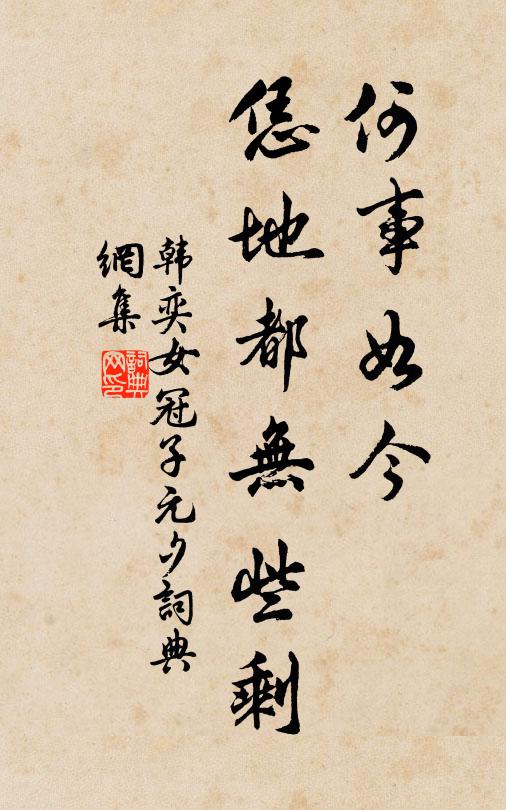 何事如今
恁地都無些剩
韩奕女冠子元夕詞典
網集
詞典
网印